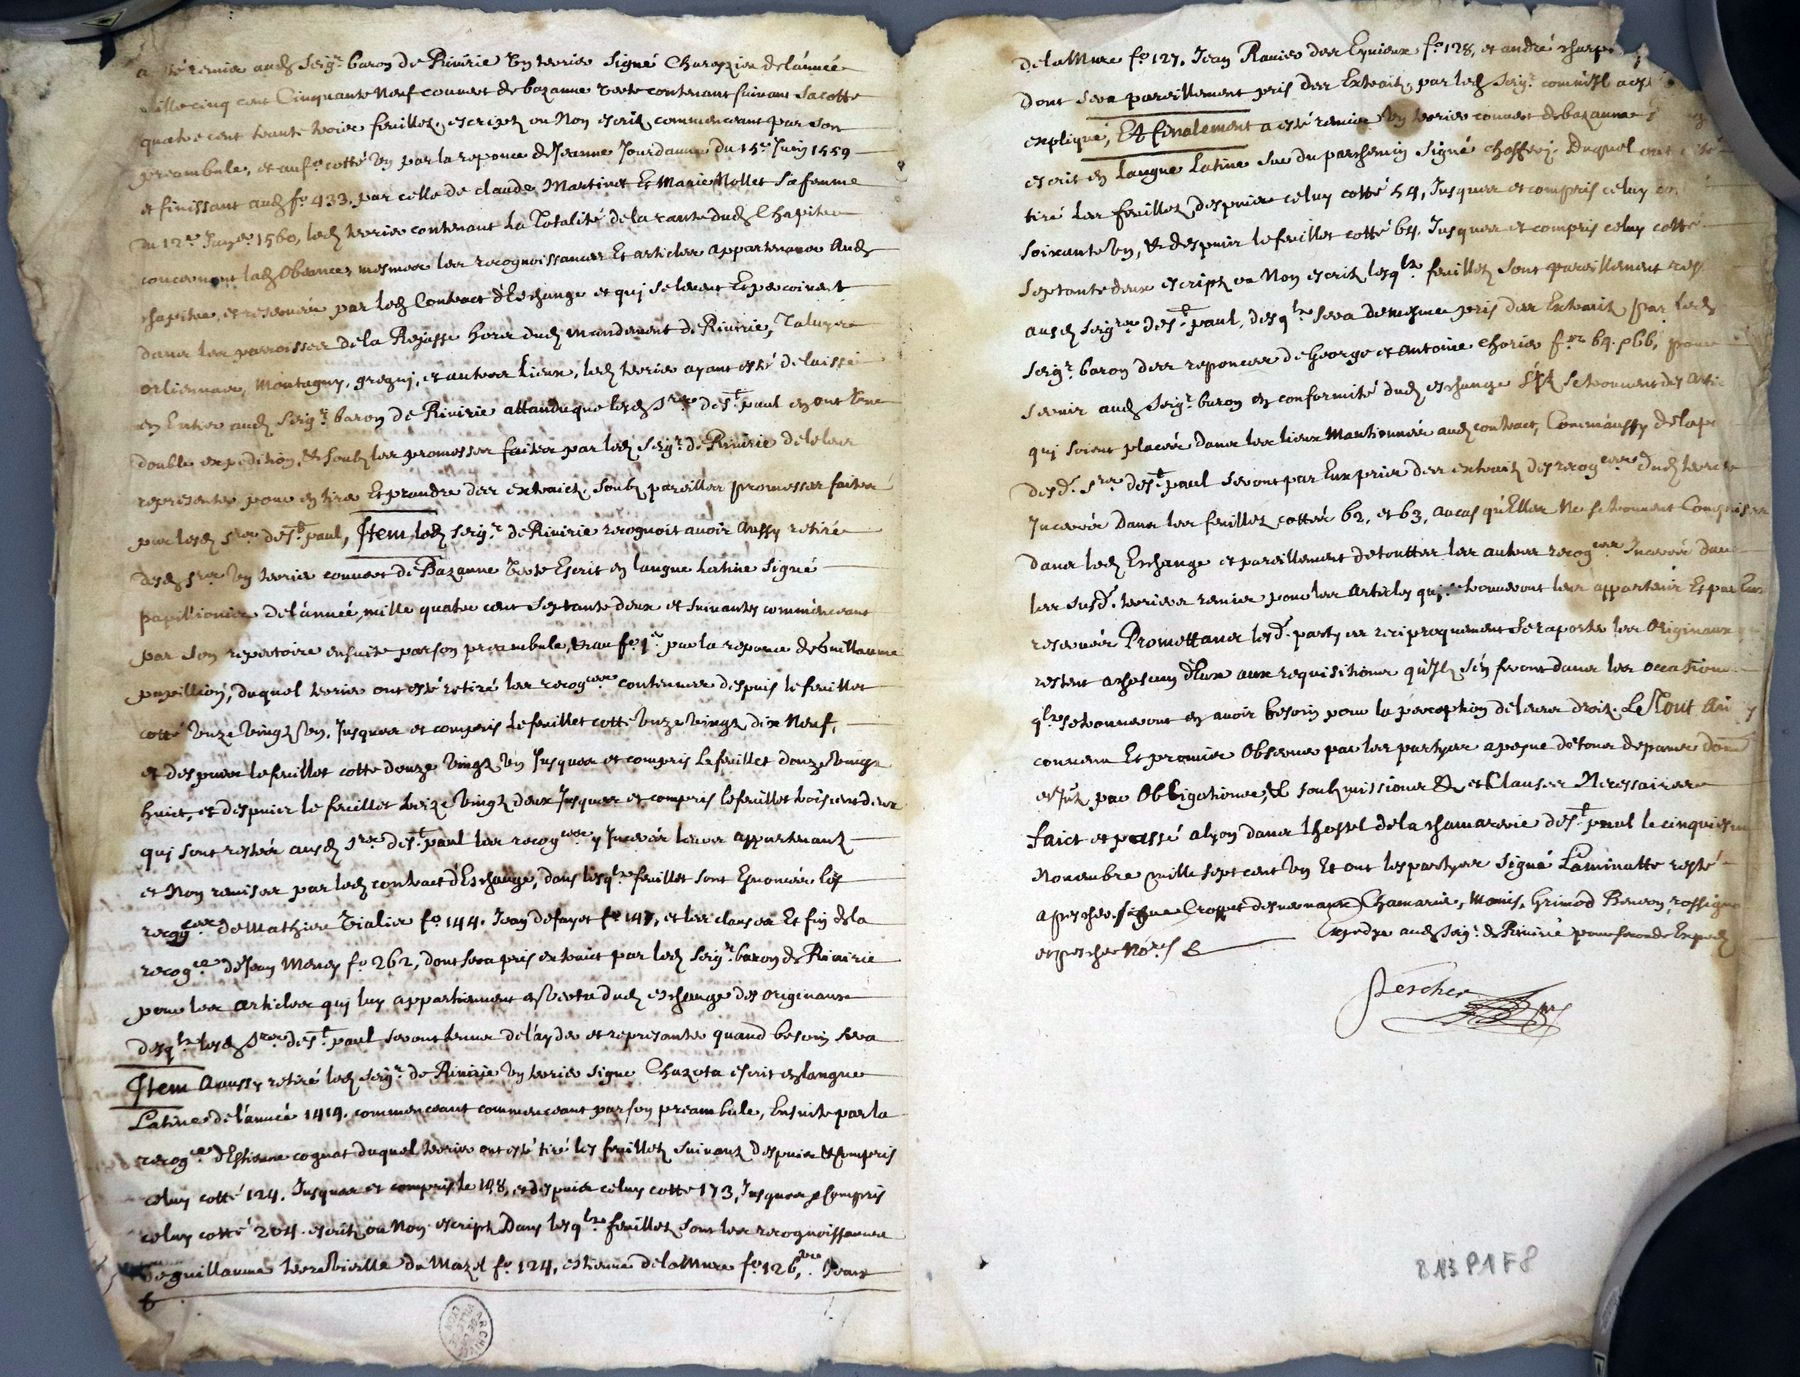 esté remis aud. Seigr. baron de Riuirie un terrier signé Charezieu de lánneé
mille cinq cent Cinquante Neuf couuert de bazanne verte contenant suiuant sa cotte
quatre cent trante trois feuillets, escripts ou Non escrits commenceant par son
preambule, et au fo. cotté un par la reponce de Jeanne Jourdanne du 15e Juin 1559
et finissant aud. fo. 433. par celle de claude Martinet Et Marie Mollet sa femme
du 12e 1560, led. terrier contenant La Totalité de la rante dud. Chapitre
concernant lad. mesmes les recognoissances Et articles appartenants Aud.
chapitre, et reserués par led. Contract d'Eschange et qui se leuent Et percoiuent
dans les parroisses de la Rajasse hors dud. mandement de Riuirie, Taluyers
Orliennas, Montagny, et autres Lieux, led. terrier ayant esté delaissé
en Entier aud. Seigr. baron de Riuirie attandu que lesd. Srs. de St. paul en ont Une
double expedition, & soubz les promesses faites par led. Seigr. de Riuirie de le leur
representer pour en tirer Et prandre des extraicts, soubz pareilles promesses faites
par lesd. Srs. de St. paul, Item led. Seigr. de Riuirie recognoit auoir Aussy retiré
desd. Srs. un terrier couuert de Bazanne verte Escrit en langue Latine signé
papillionis de lánneé, mille quatre cent septante deux et suiuantes commenceant
par son repertoire ensuite par son preambule, & au fo. 1er par la reponce de Guillaume
papillion, duquel terrier ont esté retiré les recogces. contenues despuis le feuillet
cotté vnze vingts vn, Jusques et compris le feuillet cotté vnze vingts dix Neuf,
et despuis le feuillet cotté douze vingts vn Jusques et compris Le feuillet douze vingts
huict, et despuis le feuillet treize vingts deux Jusques et compris le feuillet trois cent deux
qui sont restés ausd. Srs. de St. paul les recogces. y Inserées leurs appartenants
et Non remises par led. contract d'Eschange, dans lesqls. feuillets sont Enoncées les
recogces. de Mathieu Tialier fo. 144. Jean defayet fo. 147, et les clauses Et fin de la
recogce. de Jean Meney fo. 262, dont sera pris extraict par led. Seigr. baron de Riuirie
pour les articles qui luy appartiennent en vertu dud. eschange des originaux
desqls. lesd. Srs. de St. paul seront tenus de láyder et representer quand besoin sera
Item A aussy retiré led. Seigr. de Riuirie un terrier signé Chazota escrit en langue
Latine de lánneé 1414. commenceant commenceant par son preambule, Ensuite par la
recogce. d'Estienne cognat duquel terrier ont esté tiré les feuillets suiuants despuis & compris
celuy cotté 124. Jusques et compris le 148, et despuis celuy cotté 173, Jusques & Compris
celuy cotté 204. escrits ou Non escripts Dans lesqls. feuillets sont les recognoissances
de guillaume terre Vieille du Mazel fo. 124, estienne de la Mure fo. 126, Jean
de la Mure fo. 127. Jean Rauier des Eynieux fo. 128, et andré
dont sera pareillement pris des Extraits par led. Seigr. comm'Jl a esté
expliqué, Et finalement a esté remis un terrier couuert de bazanne
escrit en Langue Latine sur du parchemin signé Duquel ont esté
tiré les feuillets despuis celuy cotté 54, Jusques et compris celuy cotté
soixante vn, & despuis le feuillet cotté 64. Jusques et compris celuy cotté
septante deux escripts ou Non escrits lesqls. feuillets sont pareillement
ausd. Seigrs. de St. paul, desqls. sera de mesme pris des Extraits par led.
Seigr. baron des reponces de George et Antoine Chories fos. 64. & 66, pour
seruir aud. Seigr. baron en conformité dud. eschange s'Jl se trouuent des
qui soient placés dans les lieux Mantionnés aud. contract, Comm'aussy
desd. Srs. de St. paul seront par Eux pris des extraits des recogces. dud. terrier
Inserées Dans les feuillets cottés 62, et 63, au cas qu'Elles Ne se trouuent Comprises
dans led. Eschange et pareillement de touttes les autres recogces. Inserées dans
les susd. terriers remis pour les Articles qui se trouueront leur appartenir Et par Eux
reserués Promettants lesd. partyes reciproquement se raporter les Originaux
restent a chascun d'Eux aux requisitions qu'Jls s'en feront dans les occasions
qls. se trouueront en auoir besoin pour la perception de leurs droits. Le Tout Ainsy
conuenu Et promis Obseruer par les partyes a peyne de tous depans dom.
et Jnts. par Obligations, & soubzmissions &c et Clauses Necessaires
faict et passé a lyon dans l'hostel de la chamarerie de St. paul le cinquiesme
Nouembre mille sept cent Vn Et ont les partyes signé La minutte resté
a percher signé Croppet de Chamarier, Manis, Grimod Beneon, rossignol
et percher Nores. &
Expedye aud. Seigr. de Riuirie pour seconde Exped.
Percher
B 13 P 1 F 8